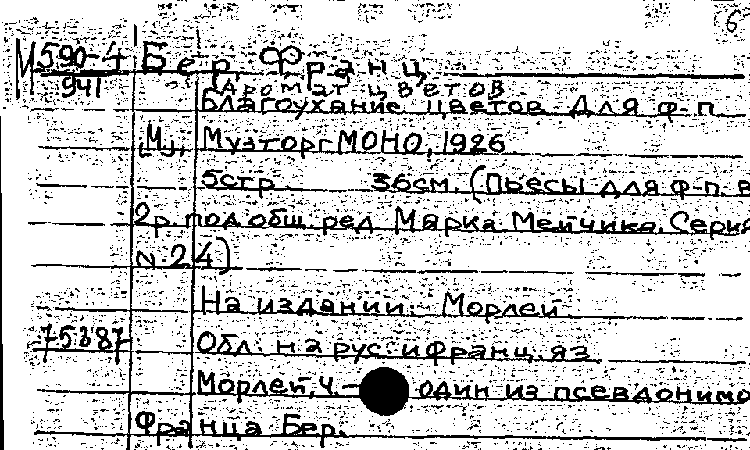 6
М 590-4 Бер, Франц
941 [Аромат цветов]
Благоухание цветов. Для ф-п.
[М.], Музторг МОНО, 1926
5 стр. 36 см. (Пьесы для ф-п. в
2 р. под общ. ред. Марка Мейчика. Серия
N. 24)
На издании: Морлей
75387 Обл. на рус. и франц. яз.
Морлей, Ч. — один из псевдонимо
Франца Бер.